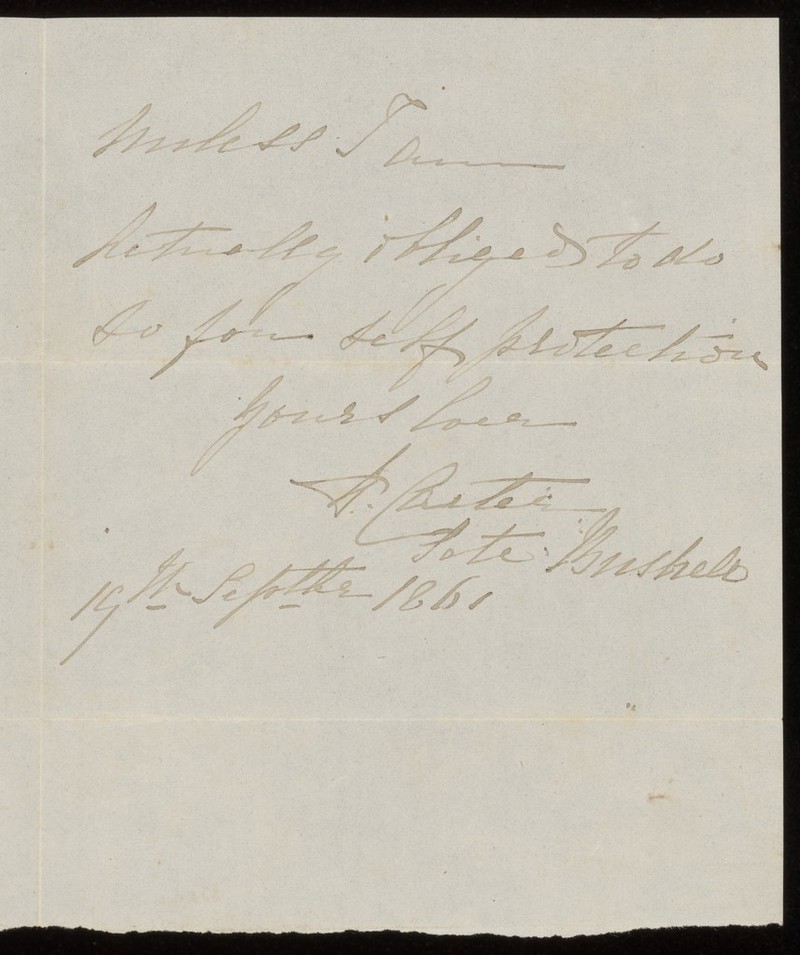 unless I am
Actually obliged to do
so for self protection
yours ever
H. Carter
late Bushell
19th Septbr 1861